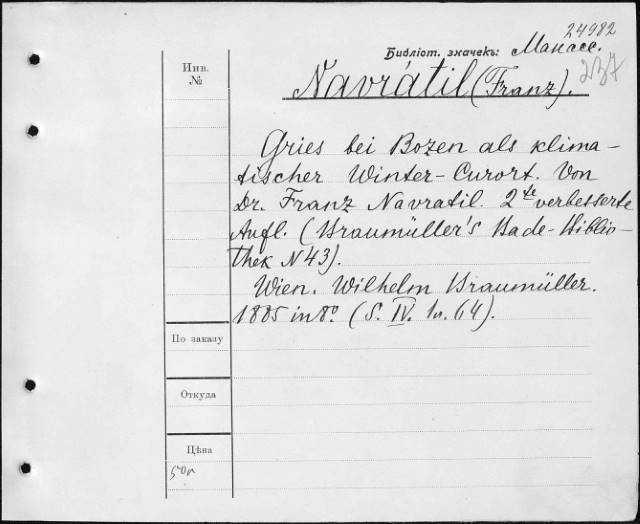 24982
Библіот. значекъ: Манасс.
237
Инв.
№
Navrátil (Franz).
Gries bei Bozen als klima-
tischer Winter-Curort. Von
Dr. Franz Navratil. 2te verbesserte
Aufl. (Braumüller's Bade-Biblio-
thek N 43).
Wien. Wilhelm Braumüller.
1885 in 8°. (S. IV. u. 64).
По заказу
Откуда
Цѣна